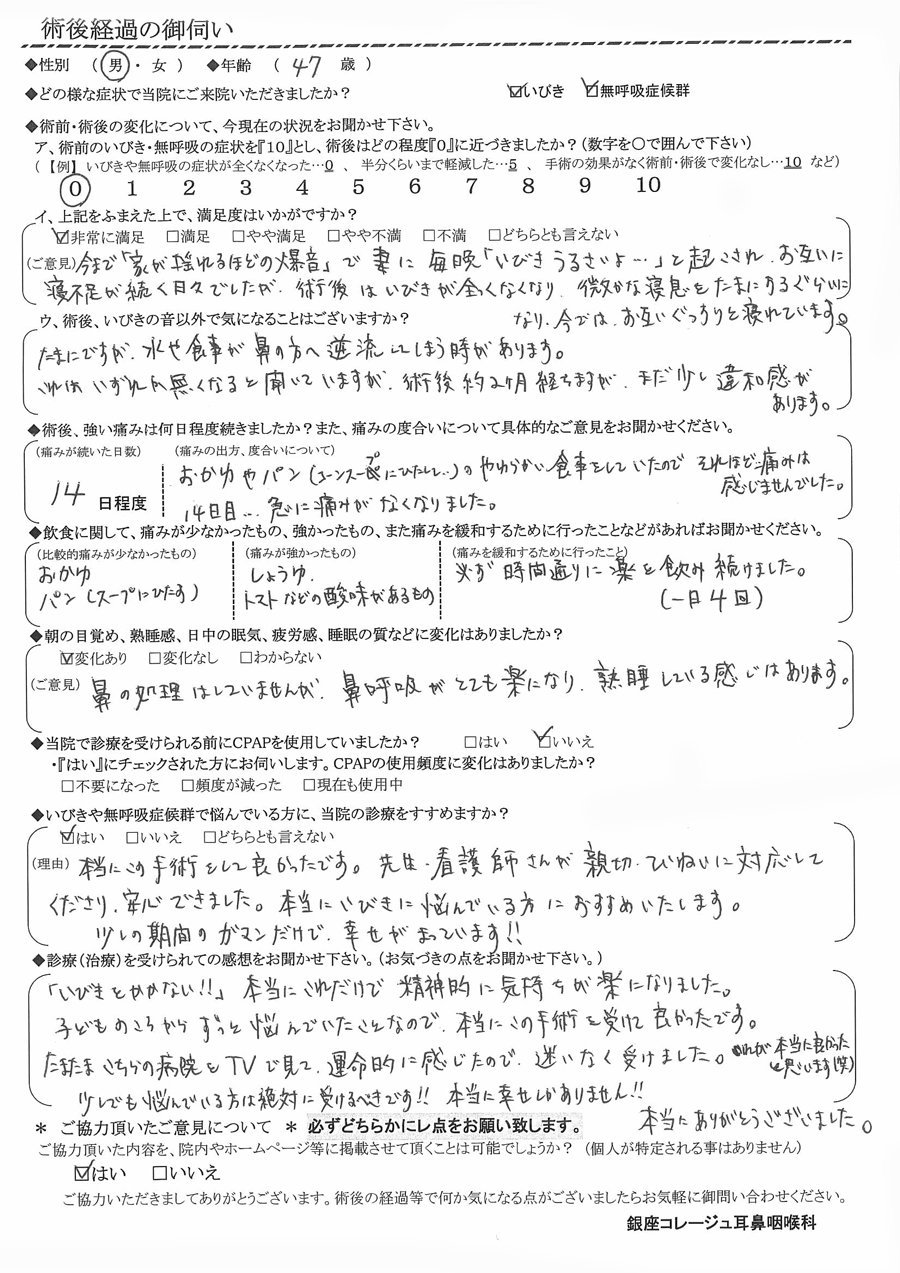 術後経過の御伺い
◆性別 (男・女) ◆年齢 (47 歳)
◆どの様な症状で当院にご来院いただきましたか? ☑いびき ☑無呼吸症候群
◆術前・術後の変化について、今現在の状況をお聞かせ下さい。
ア、術前のいびき・無呼吸の症状を『10』とし、術後はどの程度『0』に近づきましたか?(数字を○で囲んで下さい)
(【例】いびきや無呼吸の症状が全くなくなった…0 、 半分くらいまで軽減した…5 、 手術の効果がなく術前・術後で変化なし…10 など)
0 1 2 3 4 5 6 7 8 9 10
イ、上記をふまえた上で、満足度はいかがですか?
☑非常に満足 □満足 □やや満足 □やや不満 □不満 □どちらとも言えない
(ご意見) 今まで「家が揺れるほどの爆音」で妻に毎晩「いびきうるさいよ…」と起こされ、お互いに
寝不足が続く日々でしたが、術後はいびきが全くなくなり、微かな寝息をたまにするぐらいに
なり、今では、お互いぐっすりと寝れています。
ウ、術後、いびきの音以外で気になることはございますか?
たまにですが、水や食事が鼻の方へ逆流してしまう時があります。
これはいずれ無くなると聞いていますが、術後約2ヶ月経ちますが、まだ少し違和感が
あります。
◆術後、強い痛みは何日程度続きましたか?また、痛みの度合いについて具体的なご意見をお聞かせください。
(痛みが続いた日数) (痛みの出方、度合いについて)
14 日程度
おかゆやパン(コーンスープにひたして…)のやわらかい食事をしていたのでそれほど痛みは
感じませんでした。
14日目…急に痛みがなくなりました。
◆飲食に関して、痛みが少なかったもの、強かったもの、また痛みを緩和するために行ったことなどがあればお聞かせください。
(比較的痛みが少なかったもの) (痛みが強かったもの) (痛みを緩和するために行ったこと)
おかゆ しょうゆ、 必ず時間通りに薬を飲み続けました。
パン(スープにひたす) トマトなどの酸味があるもの (一日4回)
◆朝の目覚め、熟睡感、日中の眠気、疲労感、睡眠の質などに変化はありましたか?
☑変化あり □変化なし □わからない
(ご意見) 鼻の処理はしていませんが、鼻呼吸がとても楽になり、熟睡している感じはあります。
◆当院で診療を受けられる前にCPAPを使用していましたか? □はい ☑いいえ
・『はい』にチェックされた方にお伺いします。CPAPの使用頻度に変化はありましたか?
□不要になった □頻度が減った □現在も使用中
◆いびきや無呼吸症候群で悩んでいる方に、当院の診療をすすめますか?
☑はい □いいえ □どちらとも言えない
(理由) 本当にこの手術をして良かったです。先生・看護師さんが親切・ていねいに対応して
くださり、安心できました。本当にいびきに悩んでいる方におすすめいたします。
少しの期間のガマンだけで、幸せがまっています!!
◆診療(治療)を受けられての感想をお聞かせ下さい。(お気づきの点をお聞かせ下さい。)
「いびきをかかない!!」本当にこれだけで精神的に気持ちが楽になりました。
子どものころからずっと悩んでいたことなので、本当にこの手術を受けて良かったです。
たまたまこちらの病院をTVで見て、運命的に感じたので、迷いなく受けました。それが本当に良かった
と思います(笑)
少しでも悩んでいる方は絶対に受けるべきです!! 本当に幸せしかありません!!
本当にありがとうございました。
* ご協力頂いたご意見について * 必ずどちらかにレ点をお願い致します。
ご協力頂いた内容を、院内やホームページ等に掲載させて頂くことは可能でしょうか? (個人が特定される事はありません)
☑はい □いいえ
ご協力いただきましてありがとうございます。術後の経過等で何か気になる点がございましたらお気軽に御問い合わせください。
銀座コレージュ耳鼻咽喉科